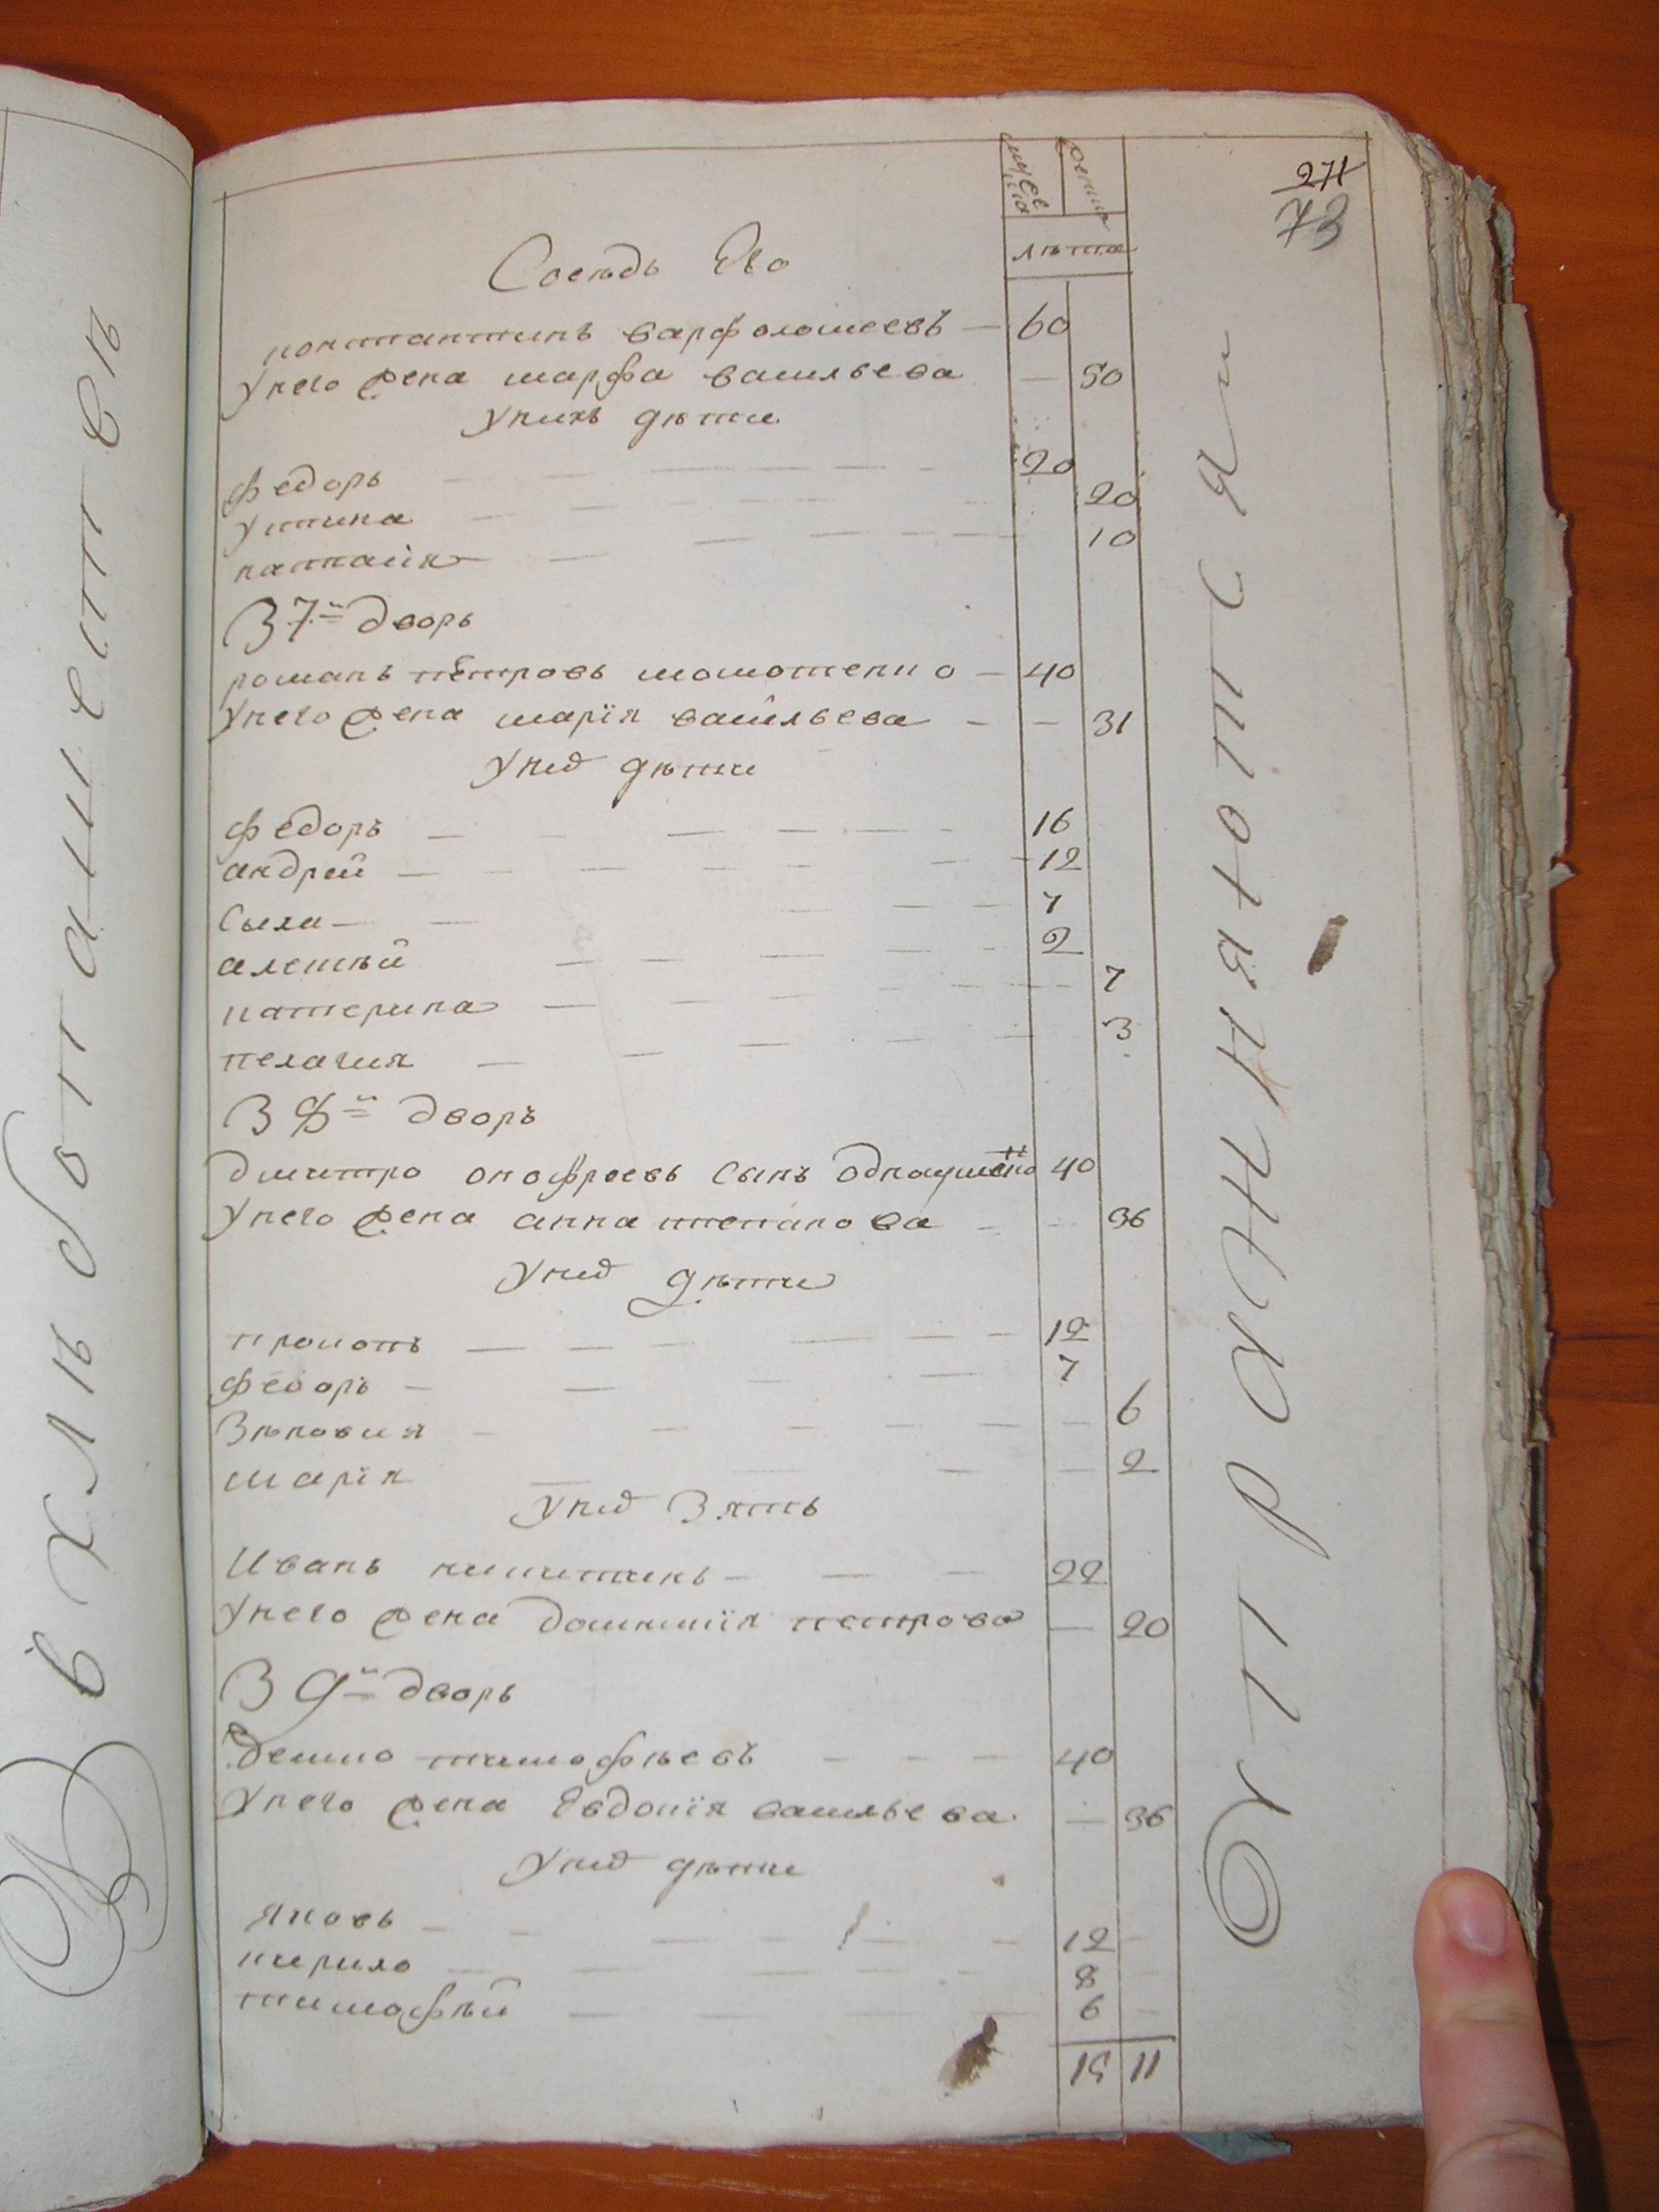 271
73
мужеска
женска
лѣта
Сосѣдъ Его
константинъ варфоломеевъ — 60
Унего жена марфа васильева — 50
Унихъ дѣти
федоръ 20
Устина 20
наталия 10
37й дворъ
романъ петровъ момотенко — 40
Унего жена марїя васильева — 31
Унид дѣти
федоръ — 16
андрей — 12
Сыла — 7
алексѣй — 2
катерина — 7
пелагия — 3
38й дворъ
дмитро онофреевъ сынъ 40
Унего жена анна степанова — 36
Унид дѣти
прокопъ — 12
федоръ — 7
Зѣновия — 6
марїя — 2
Унид Зять
Иванъ никитинъ — 22
Унего жена домникїя петрова — 20
39й дворъ
Демко тимофѣевъ — 40
Унего жена Евдокїя васильева — 36
Унид дѣти
яковъ — 12
кирило — 8
тимофѣй — 6
15 11